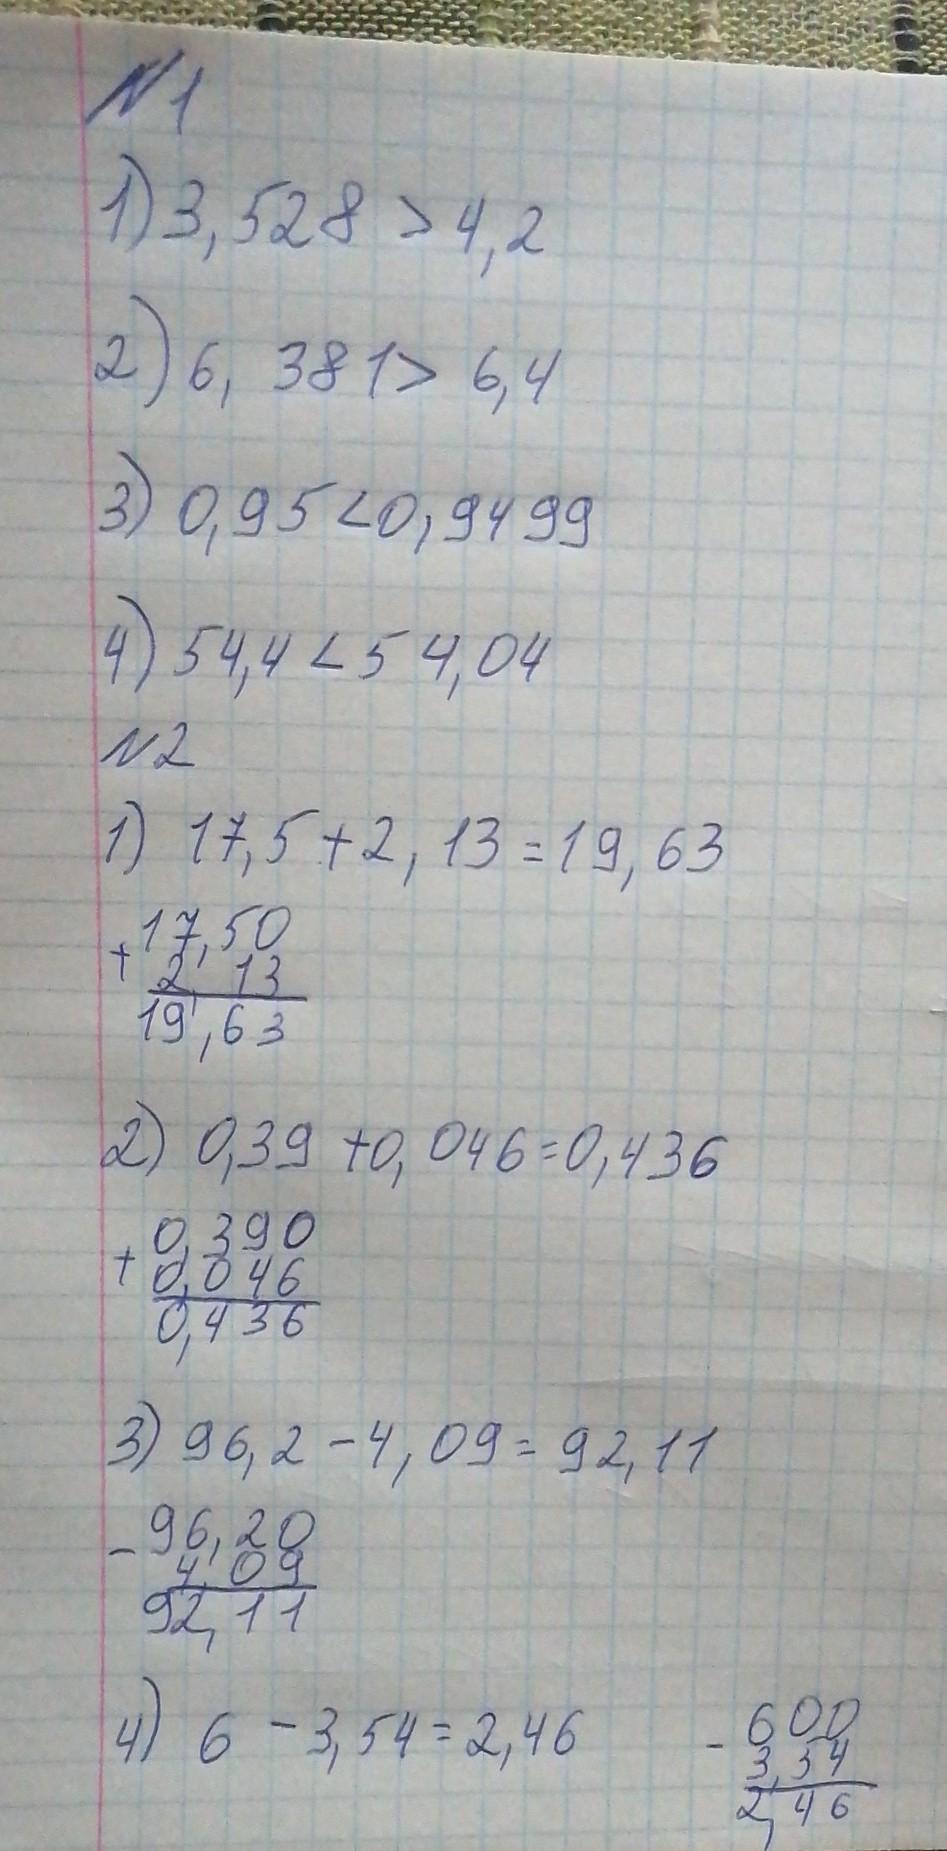 №1
1) 3,528 > 4,2
2) 6, 381 > 6,4
3) 0,95 < 0,9499
4) 54,4 < 54,04
№2
1) 17,5 + 2,13 = 19,63
+ 17,50
2,13
19,63
2) 0,39 + 0,046 = 0,436
+ 0,390
0,046
0,436
3) 96,2 - 4,09 = 92,11
- 96,20
4,09
92,11
4) 6 - 3,54 = 2,46
- 600
3,34
2,46